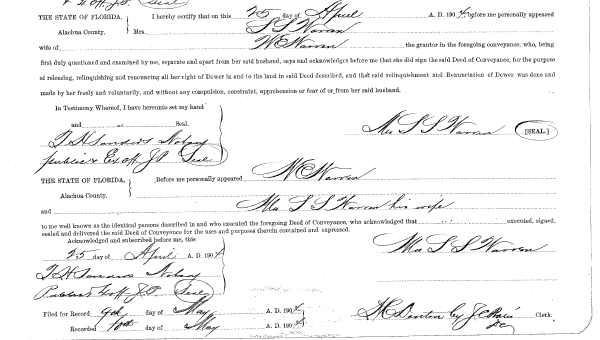 & Ex off J.P. Seal
THE STATE OF FLORIDA, I hereby certify that on this 25 day of April A. D. 1904, before me personally appeared
Alachua County. Mrs. S S Warren
wife of W E Warren the grantor in the foregoing conveyance, who, being
first duly questioned and examined by me, separate and apart from her said husband, says and acknowledges before me that she did sign the said Deed of Conveyance, for the purpose
of releasing, relinquishing and renouncing all her right of Dower in and to the land in said Deed described, and that said relinquishment and Renunciation of Dower was done and
made by her freely and voluntarily, and without any compulsion, constraint, apprehension or fear of or from her said husband.
In Testimony Whereof, I have hereunto set my hand
and as Seal.
Mrs S S Warren [SEAL.]
T H Sanders Notary
public & Ex off J.P. Seal
THE STATE OF FLORIDA, Before me personally appeared W E Warren
Alachua County.
and Mrs S S Warren his wife
to me well known as the identical persons described in and who executed the foregoing Deed of Conveyance, who acknowledged that executed, signed,
sealed and delivered the said Deed of Conveyance for the uses and purposes therein contained and expressed.
Acknowledged and subscribed before me, this
Mrs S S Warren
25 day of April A. D. 1904
T H Sanders Notary
Public & Ex off J.P. Seal
Filed for Record 9th day of May A. D. 1904
Clerk.
Recorded 10th day of May A. D. 1904